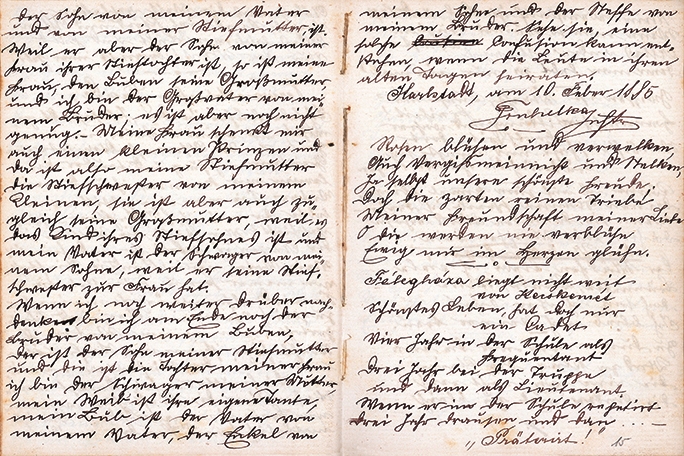 der Sohn von meinem Vater
und von meiner Stiefmutter ist.
Weil er aber der Sohn von meiner
Frau ihrer Stieftochter ist, so ist meine
Frau, den Buben seine Großmutter,
und ich bin der Großvater von mei-
nem Bruder; es ist aber noch nicht
genug. – Meine Frau schenkt mir
auch einen kleinen Prinzen und
da ist also meine Stiefmutter
die Stiefschwester von meinem
Kleinen, sie ist aber auch zu-
gleich seine Großmutter, weil er
das Kind ihres Stiefsohnes ist und
mein Vater ist der Schwager von mei-
nem Sohne, weil er seine Stief-
schwester zur Frau hat.
Wenn ich noch weiter drüber nach-
denke bin ich am Ende noch der
Bruder von meinem Buben,
der ist der Sohn meiner Stiefmutter
und die ist die Tochter meiner Frau
ich bin der Schwager meiner Mutter,
mein Weib ist ihre eigene Tante,
mein Bub ist der Vater von
meinem Vater, der Enkel von
meinem Sohne und der Neffe von
meinem Bruder. Sehe sie, eine
solche Confusion kann ent-
stehen, wenn die Leute in ihren
alten Tagen heiraten.
am 10. Feber 1885
Rosen blühen und verwelken
Auch Vergißmeinnicht und Nelken,
Ja selbst unsere schönste Freude;
Doch die zarten reinen Triebe
Meiner Freundschaft meiner Liebe
O die werden nie verblühn
Ewig nur im Herzen glühn.
Felegyháza liegt nicht weit
von Kecskemét
Schönstes Leben, hat doch nur
ein Cadet
Vier Jahr in der Schule als
Frequentant
Drei Jahr bei der Truppe
und dann als Lieutenant.
Wenn er in der Schule repetirt
Drei Jahr draußen und dan ....
15